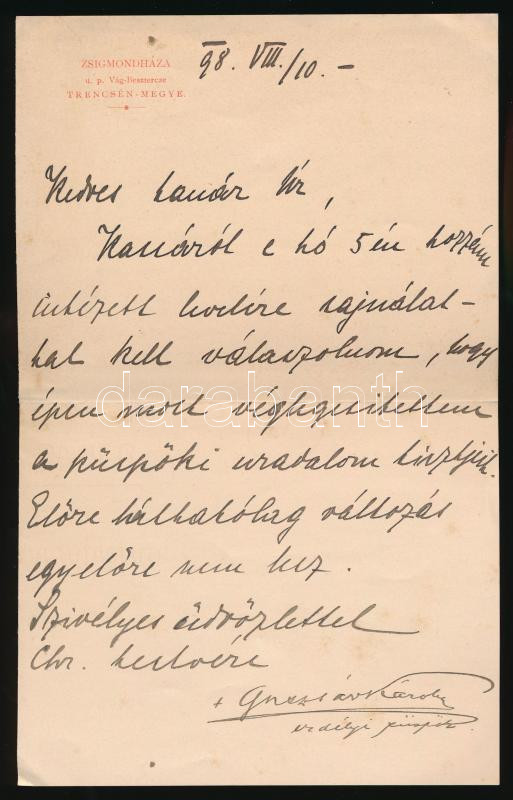 ZSIGMONDHÁZA
u. p. Vág-Besztercze
TRENCSÉN-MEGYE.
98. VIII./10. –
Kedves tanár Úr,
e hó 5 én hozzám
intézett levelére sajnálat-
tal kell válaszolnom, hogy
épen most véglegesitettem
a püspöki uradalom tisztjeit.
Előre láthatólag változás
egyelőre nem lesz.
Szivélyes üdvözlettel
Chr. testvére
+ Károly
erdélyi püspök.
darabanth